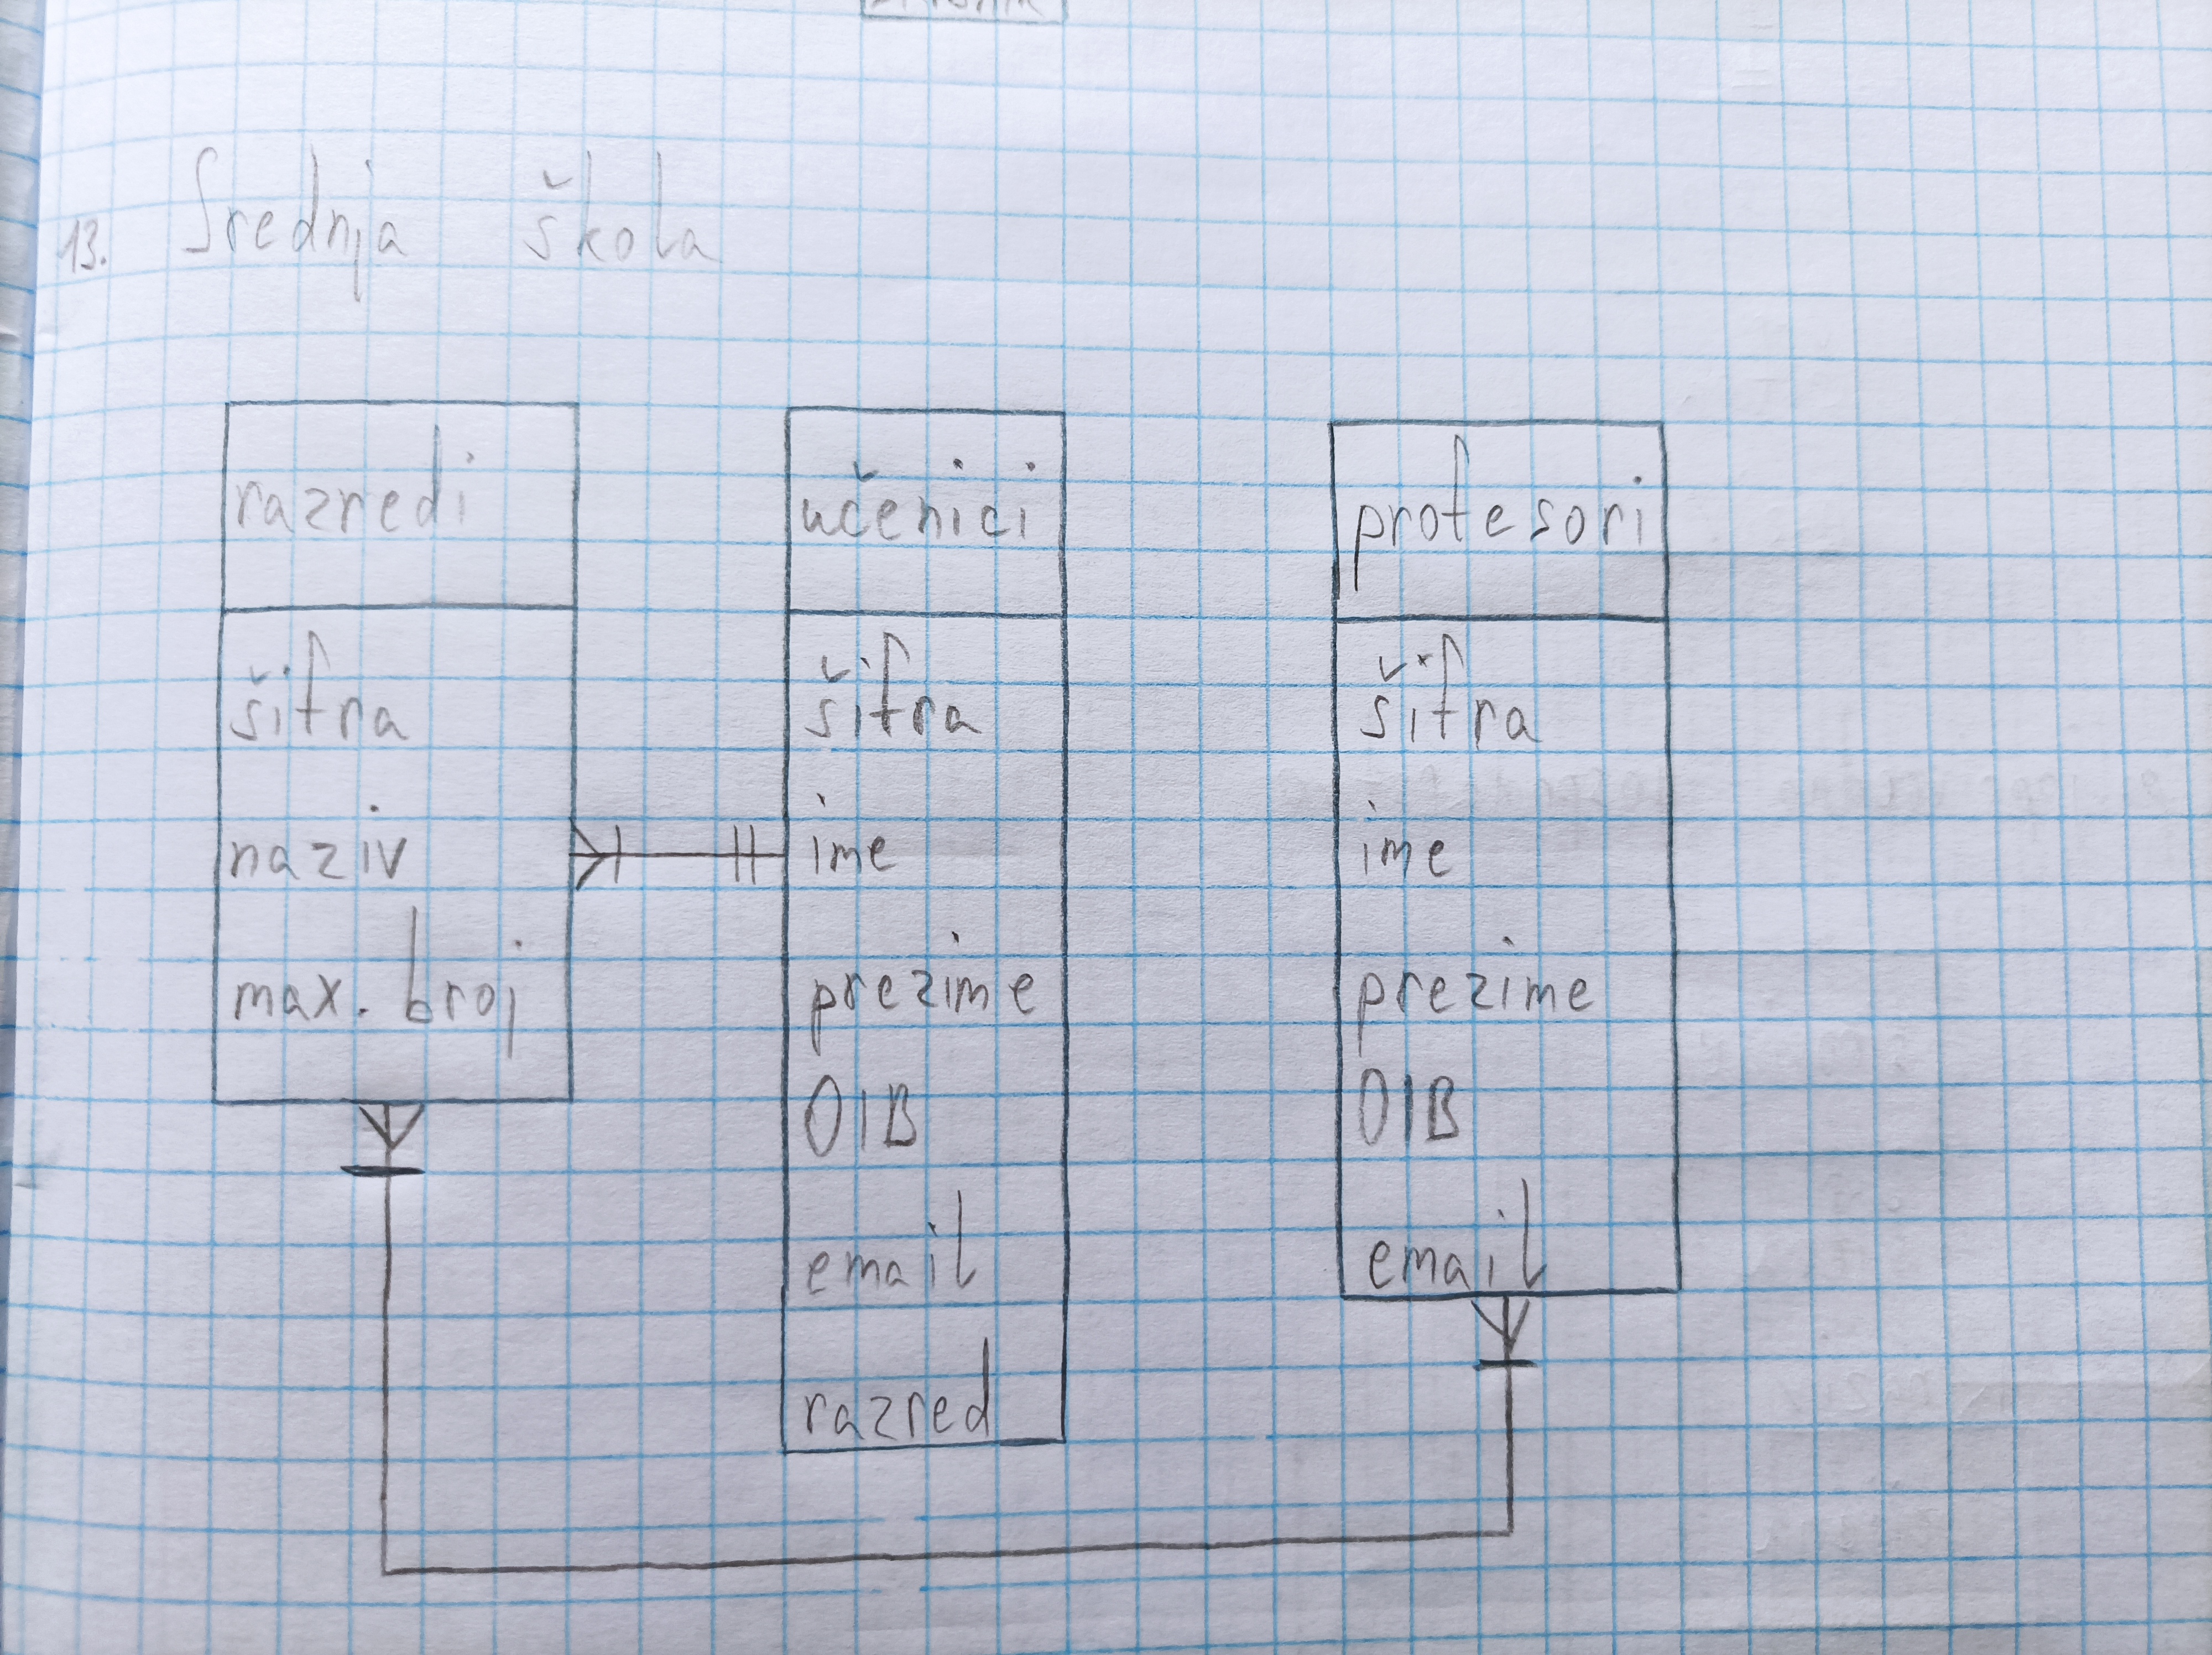 13. Srednja škola
razredi
šifra
naziv
max. broj
učenici
šifra
ime
prezime
OIB
email
razred
profesori
šifra
ime
prezime
OIB
email